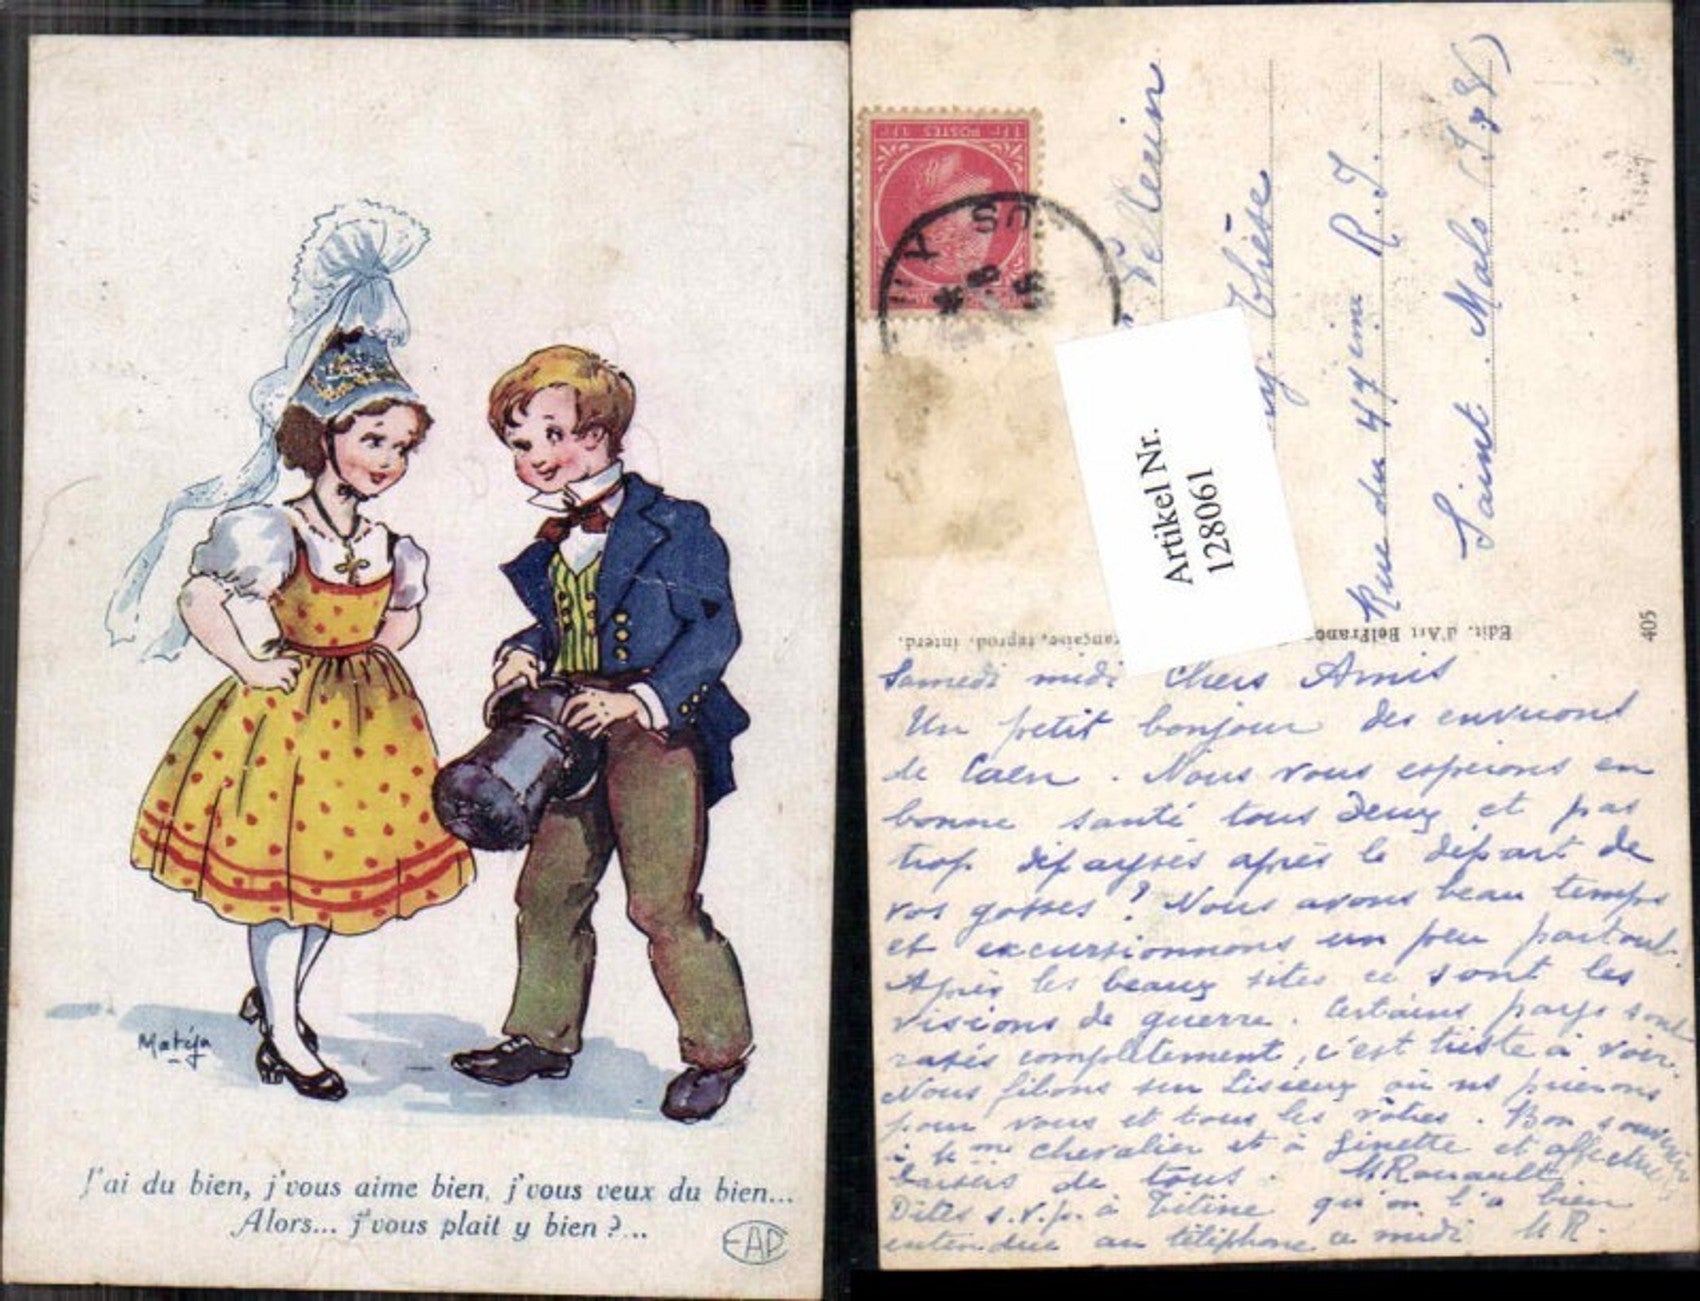 Matéja
J'ai du bien, j'vous aime bien, j'vous veux du bien...
Alors... j'vous plait y bien ?...
EAP
1 Fr POSTES 1 Fr
US A
Pelleuin
Thièse
Rue du 47 ème R.I.
Saint Malo (I & V)
Artikel Nr.
128061
Edit. d'Art Belfranc
rançaise, reprod. interd.
405
Samedi midi Chers Amis
Un petit bonjour des environs
de Caen. Nous vous espérons en
bonne santé tous deux et pas
trop dépaysés après le départ de
vos gosses ? Nous avons beau temps
et excursionnons un peu partout.
Après les beaux sites ce sont les
visions de guerre. Certains pays sont
rasés complètement, c'est triste à voir.
Nous filons sur Lisieux où ns prierons
pour vous et tous les vôtres. Bon souvenir
à Me Chevalier et à Ginette et affectueux
baisers de tous. M Rouault
Dites s.v.p. à Titine qu'on l'a bien
entendue au téléphone ce midi M R.